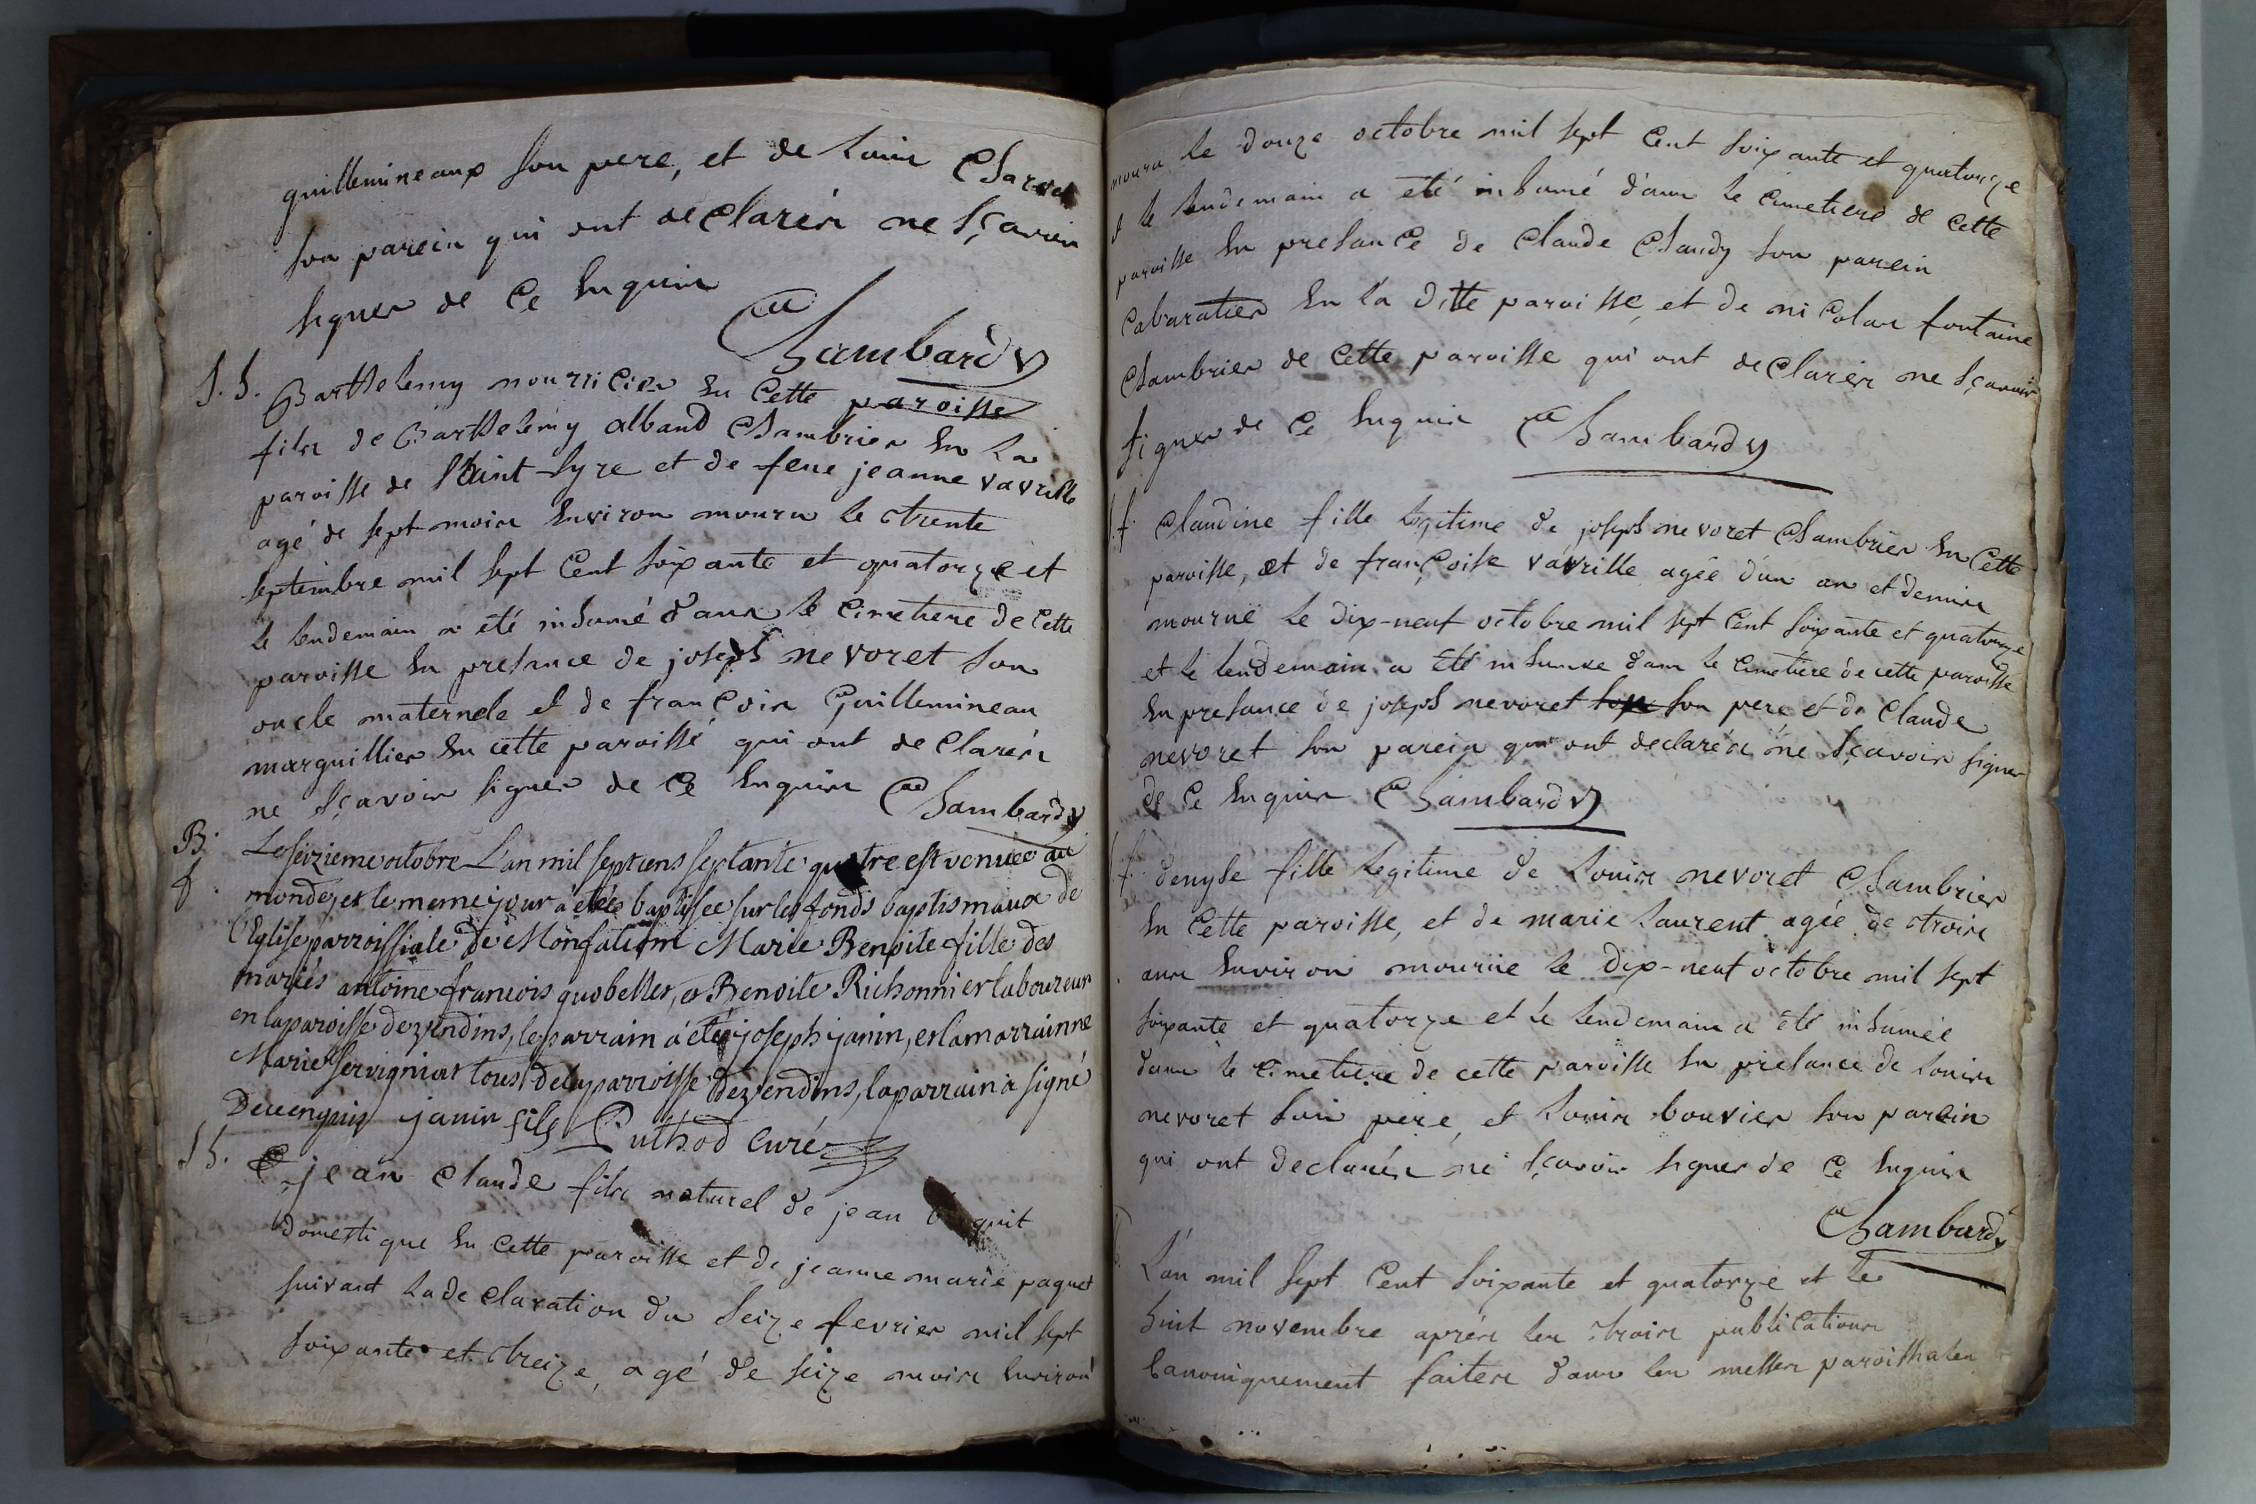 guillemineaux son pere, et de Louis Charvet
son parein qui ont declarés ne sçavoir
signer de ce enquis
Chambard
S. S. Barthelemy nourricier en cette paroisse
fils de Barthelémy alband Chambrier en la
paroisse de Saint-Syre et de feue jeanne vavrille
agé de sept mois environ mouru le trente
septembre mil sept Cent soixante et quatorze et
le lendemain a été inhumé dans le cimetiere de cette
paroisse en presance de joseph nevoret son
oncle maternele et de françois Guillemineau
marguillier en cette paroisse qui ont declarés
ne sçavoir signer de ce enquis Chambard
B. Le seizieme octobre L'an mil sept cens septante quatre est venuee au
f. monde, et le meme jour à etée baptisee sur les fonds baptismaux de
l'Eglise parroissiale de Monfalcon Marie Benoite fille des
mariés antoine francois quobeller, et Benoite Richonnier laboureur
en la paroisse dezendins, le parrain à été joseph janin, et la marrainne
Marie servigniat tous de la parroisse dezendins, la parrain à signé
De ce enquis janin fils Puthod Curé
S S. jean Claude fils naturel de jean
domestique en cette paroisse et de jeanne marie paquet
suivant la declaration du seize fevrier mil sept
soixante et treize, agé de seize mois environ
mouru le douze octobre mil sept Cent soixante et quatorze
et le lendemain a été inhumé dans le cimetiere de cette
paroisse en presance de Claude Chandy son parein
Cabaratier en la ditte paroisse, et de nicolas fontaine
Chambrier de cette paroisse qui ont declarés ne sçavoir
signer de ce enquis Chambard
f. Claudine fille legitime de joseph nevoret Chambrier en cette
paroisse, et de françoise vavrille agée d'un an et demis
mourue le dix-neuf octobre mil sept Cent soixante et quatorze
et le lendemain a été inhumee dans le cimetiere de cette paroisse
en presance de joseph nevoret son son pere et de Claude
nevoret son parein qui ont declarés ne sçavoir signer
de ce enquis Chambard
f. denyse fille legitime de Louis nevoret Chambrier
en cette paroisse, et de marie Laurent agée de trois
ans environ mourue le dix-neuf octobre mil sept
soixante et quatorze et le lendemain a été inhumée
dans le cimetiere de cette paroisse en presance de Louis
nevoret son pere, et Louis bouvier son parein
qui ont declarés ne sçavoir signer de ce enquis
Chambard
L'an mil sept Cent soixante et quatorze et le
huit novembre aprés les trois publications
Canoniquement faites dans les messes paroissiales